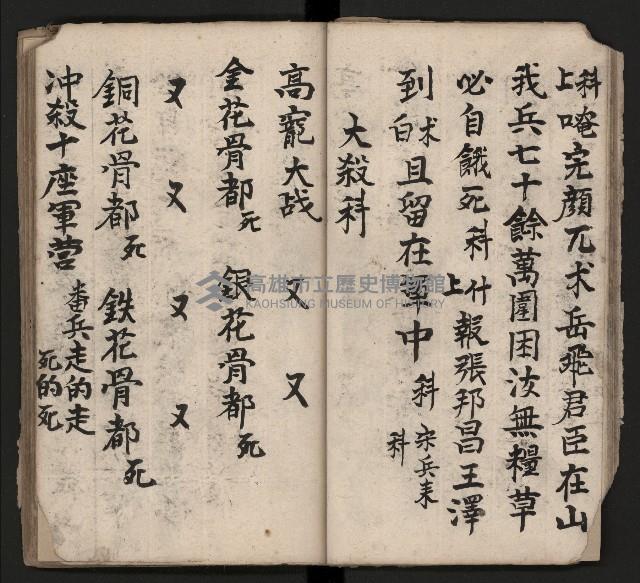 科上唵完顏兀术岳飛君臣在山
我兵七十餘萬圍困汝無糧草
必自餓死科什上報張邦昌王澤
到术白且留在軍中科宋兵来科
大殺科
高寵大战又又
金花骨都死銀花骨都死
又又又又
銅花骨都死鉄花骨都死
冲殺十座軍营番兵走的走死的死
高雄市立歷史博物館
KAOHSIUNG MUSEUM OF HISTORY